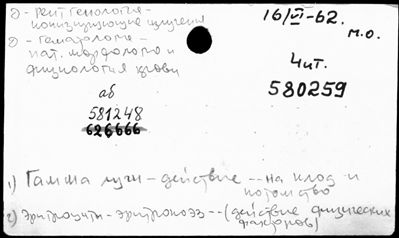 2) - рентгенология -
ионизирующие излучения
2) - гематология -
пат. морфология и
физиология крови
16/VI-62.
м.о.
Чит.
580259
аб
581248
626666
1) Гамма лучи - действие -- на плод и
потомство
2) Эритроциты - эритропоэз -- (действие физических
факторов)